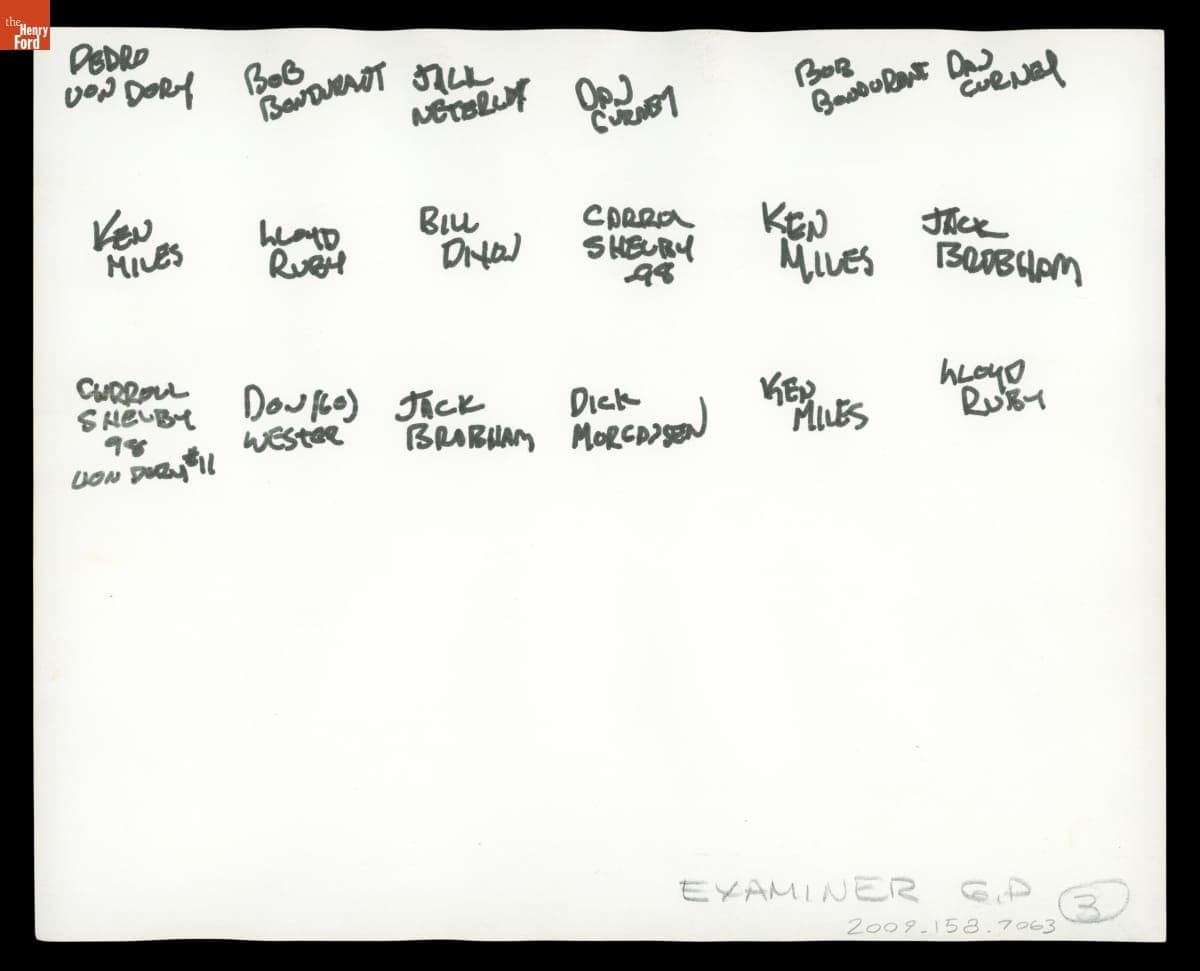 the
Henry
Ford
PEDRO
VON DORY
BOB
BONDURANT
JACK
DAN
GURNEY
BOB
BONDURANT
DAN
GURNEY
KEN
MILES
LLOYD
RUBY
BILL
DIXON
CARROL
SHELBY
98
KEN
MILES
JACK
BRABHAM
CARROLL
SHELBY
98
VON DORY #11
DON (60)
WESTER
JACK
BRABHAM
DICK
MORGENSEN
KEN
MILES
LLOYD
RUBY
EXAMINER G.P 3
2009.158.7063